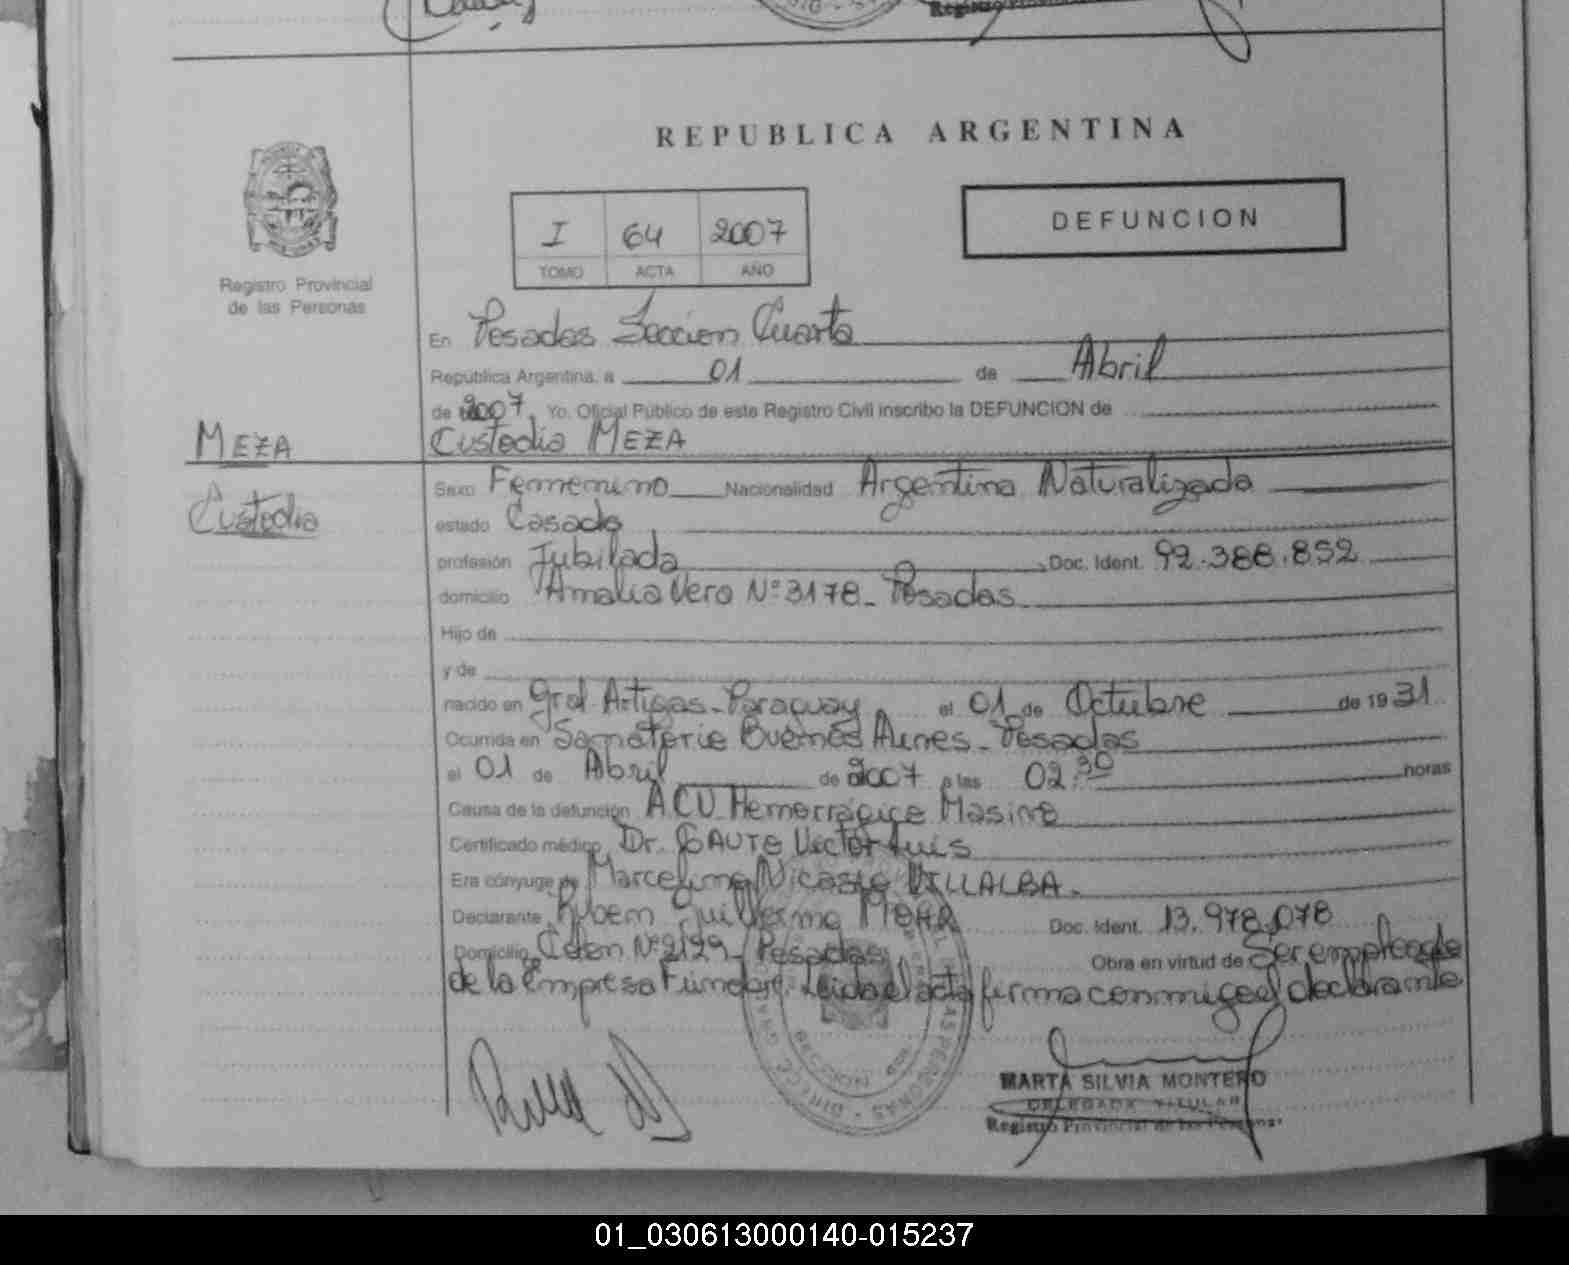 REPUBLICA ARGENTINA
DEFUNCION
I 64 2007
TOMO ACTA AÑO
Registro Provincial
de las Personas
En Posadas Seccion Cuarta
República Argentina, a 01 de Abril
de 2007, Yo, Oficial Público de este Registro Civil inscribo la DEFUNCION de
MEZA
Custodia MEZA
Custodia
Sexo Femenino Nacionalidad Argentina Naturalizada
estado Casada
profesión Jubilada Doc. Ident. 92.388.852
domicilio Amalia Vera Nº 3178 - Posadas
Hijo de
y de
nacido en Gral. Artigas - Paraguay el 01 de Octubre de 1931
Ocurrida en Sanatorio Buenos Aires - Posadas
el 01 de Abril de 2007 a las 02:30 horas
Causa de la defunción ACV Hemorrágico Masivo
Certificado médico Dr. Victor Luis
Era cónyuge de Marcelino Nicasio VILLALBA.
Declarante Ruben Guillermo Doc. Ident. 13.978.078
Domicilio Colon Nº 2129 - Posadas Obra en virtud de Ser empleado
de la Empresa Leida el acta firma conmigo el declarante
MARTA SILVIA MONTERO
DELEGADA TITULAR
Registro Provincial de las Personas
01_030613000140-015237